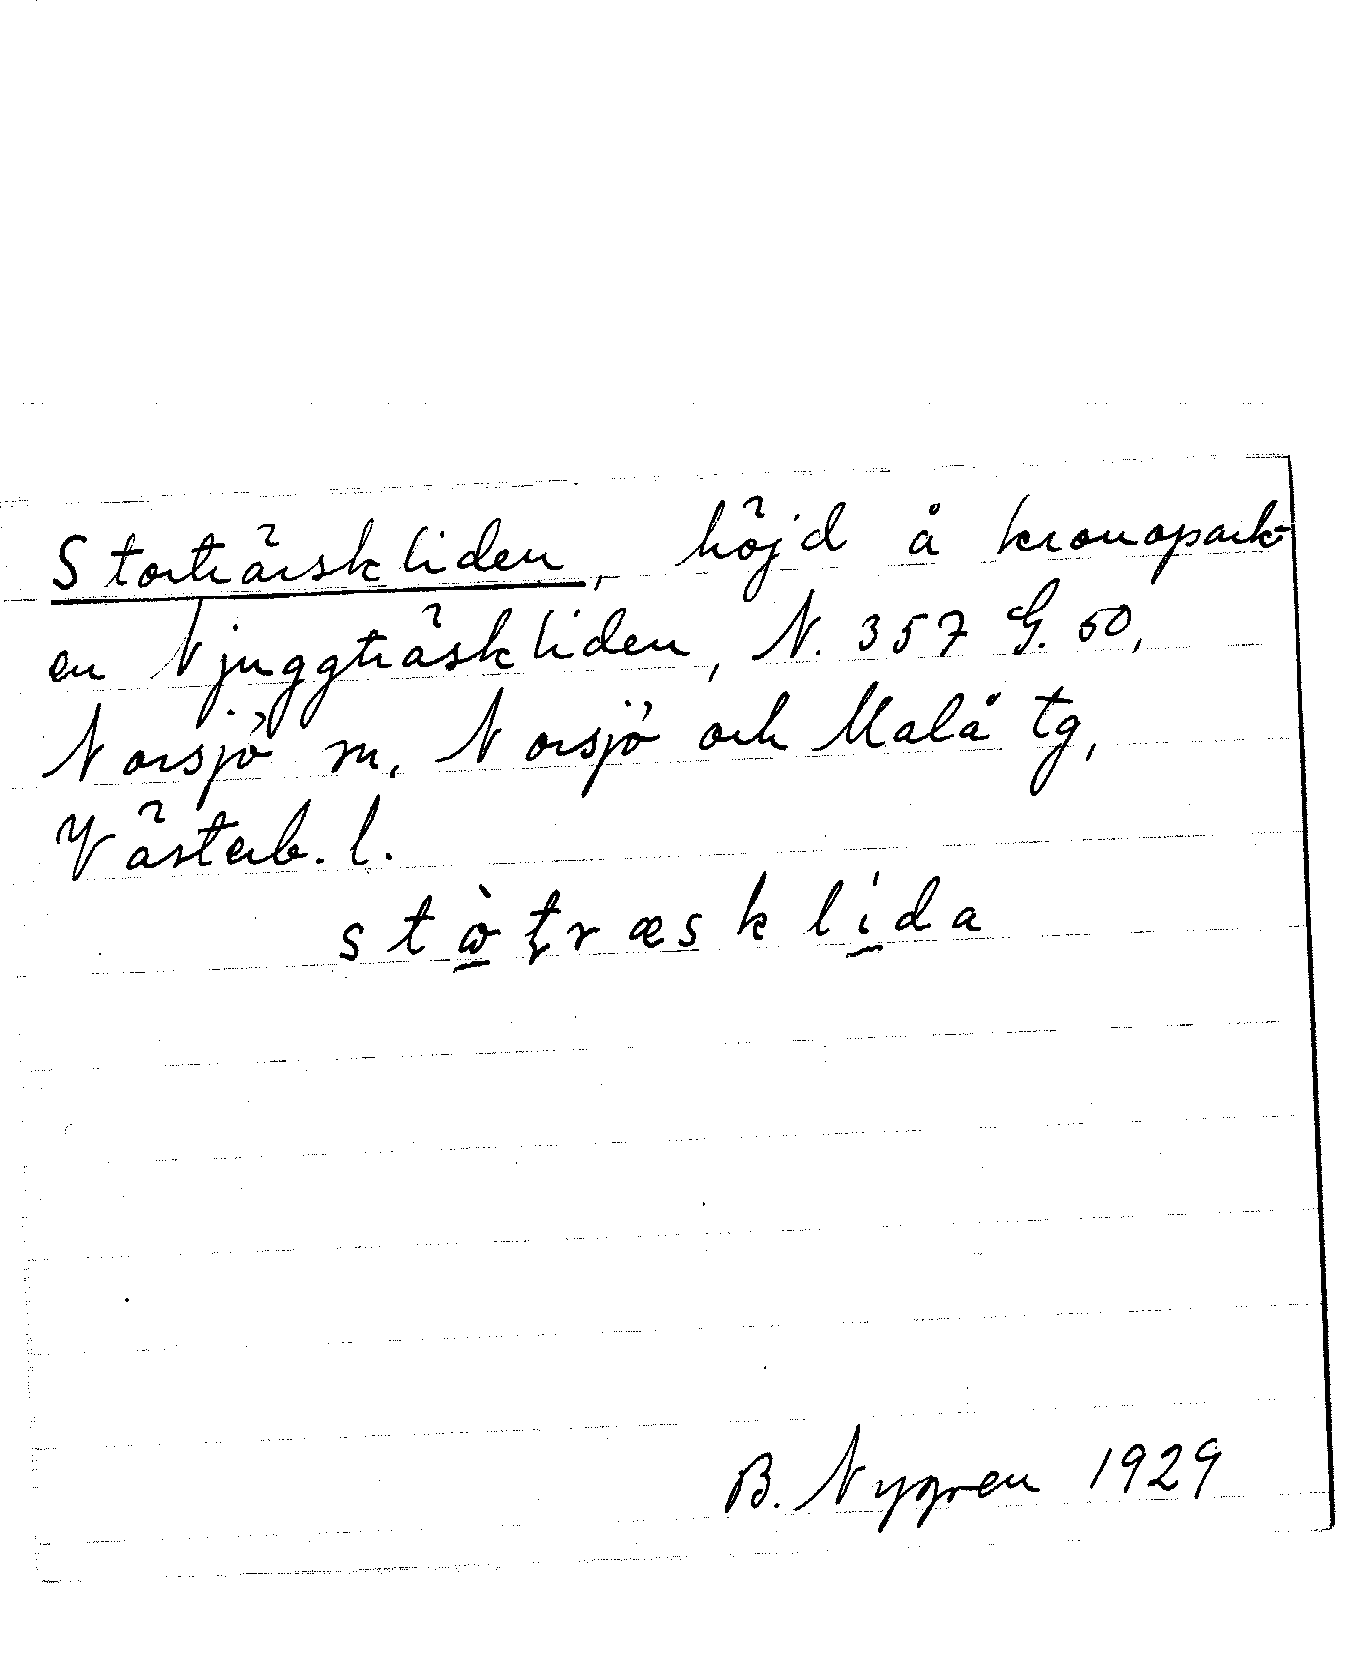 Storträskliden, höjd å kronopark-
en Njuggträskliden, N. 357 G. 50,
Norsjö sn, Norsjö och Malå tg,
Västerb. l.
stὼ̲ƫræsklí̲da
B. Nygren 1929